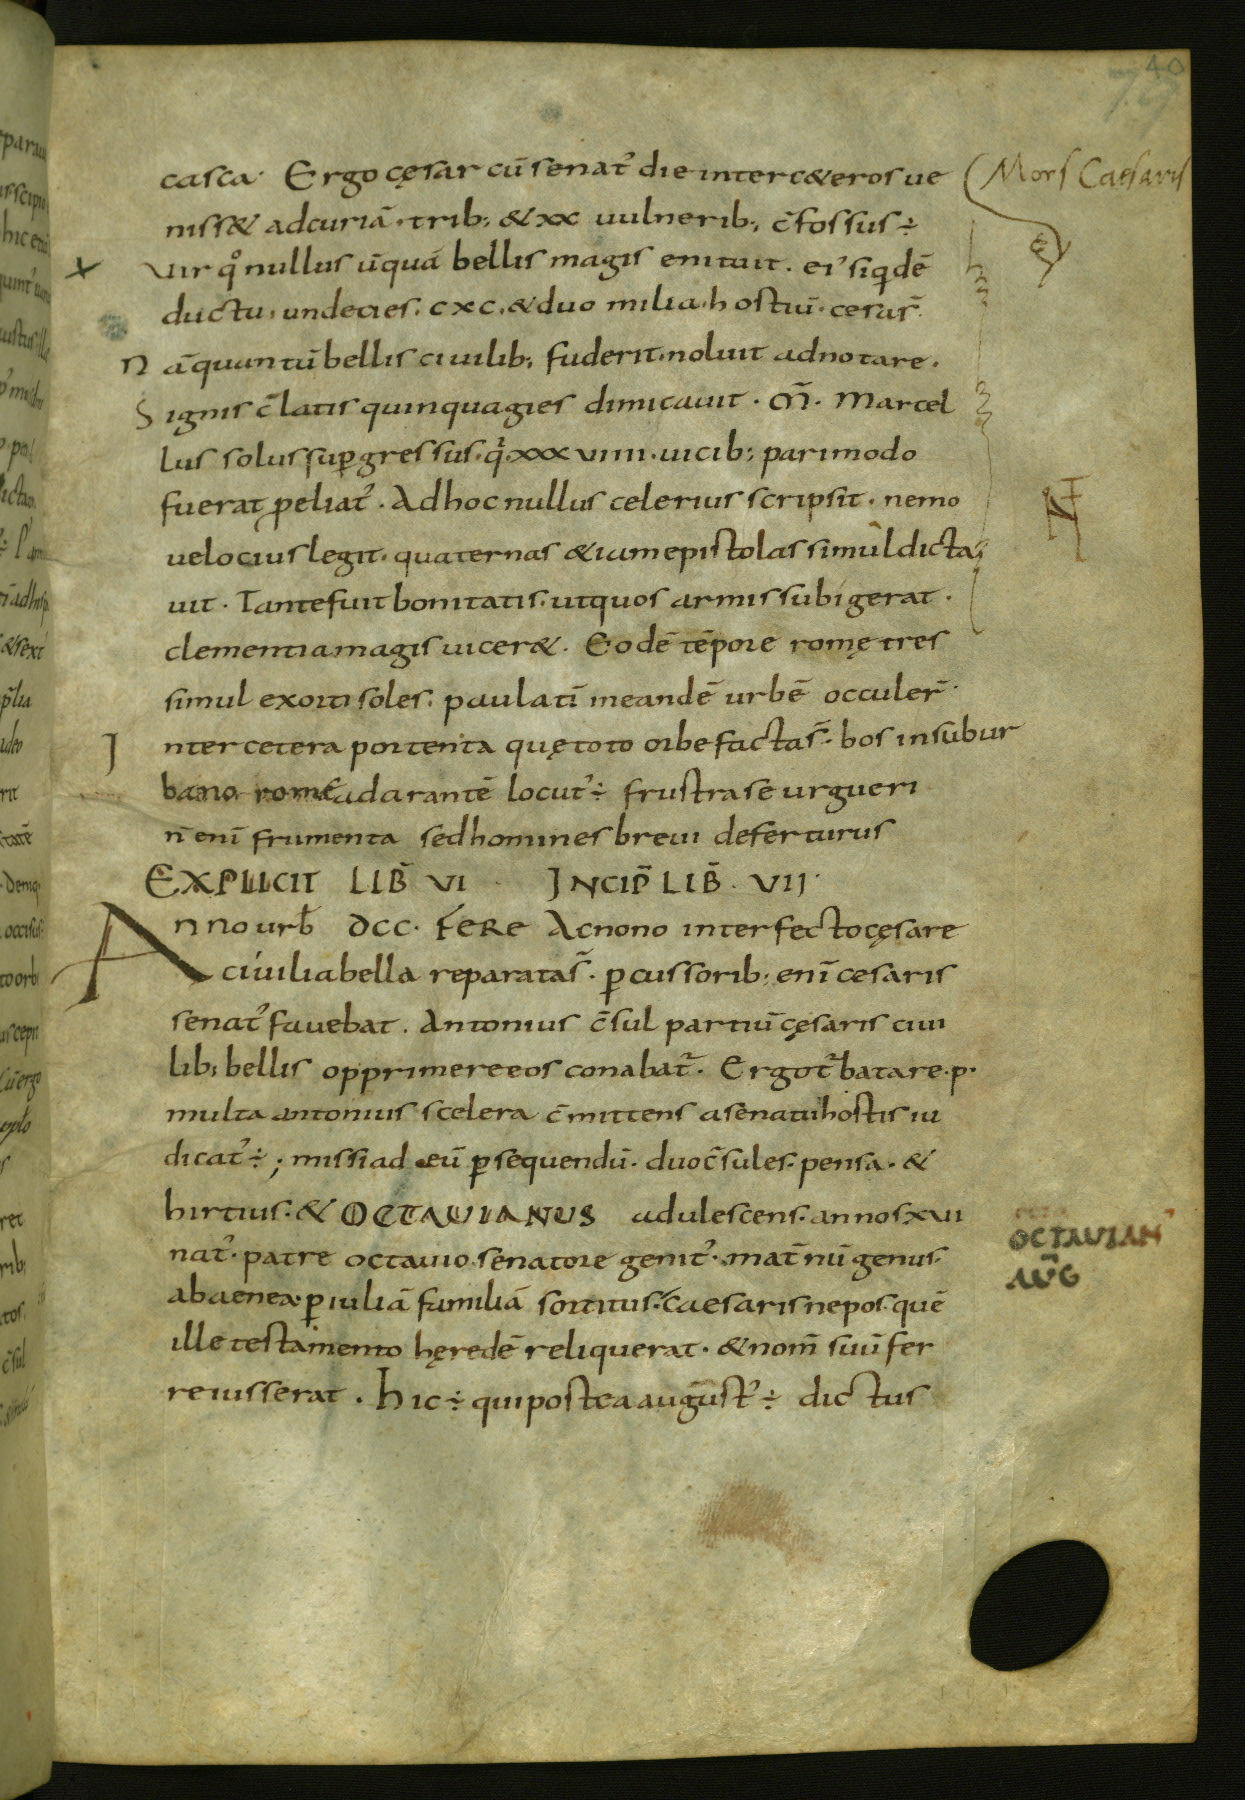 40
casca· Ergo cęsar cū senat᾿ die inter c&eros ue
Mors Caesaris
niss& ad curiā· trib; & xx uulnerib; c̄fossus ÷
uir qͦ nullus ūquā bellis magis enituit. ei᾿ siqdē
ductu· undecies· cxc· & duo milia· hostiū· cesas̄.
N ā quantū bellis ciuilib; fuderit· noluit adnotare.
S ignis c̄latis quinquagies dimicauit· M̄· Marcel
lus solus suꝑgressus· qͥ xxxuiiii· uicib; pari modo
fuerat ꝓeliat᾿. Ad hoc nullus celerius scripsit· nemo
uelocius legit· quaternas & iam epistolas simul dicta
uit. Tante fuit bonitatis· ut quos armis subigerat·
clementia magis uicer&. Eodē tēpore romę tres
simul exorti soles· paulatī in eandē urbē occuler̄·
I nter cetera portenta quę toto orbe facta s̄· bos in subur
bano rome ad arantē locut᾿ ÷ frustra se urgueri
n̄ enī frumenta sed homines breui deferturus
EXPLICIT LIB̄ VI INCIP̄ LIB̄. VII·
Anno urb̄ DCC· fere Ac nono interfecto cęsare
ciuilia bella reparata s̄. ꝑcussorib; enī cesaris
senat᾿ fauebat. Antonius c̄sul partiū cęsaris ciui
lib; bellis opprimere eos conabat᾿. Ergo t᾿bata re·p·
multa antonius scelera c̄mittens a senatu hostis iu
dicat᾿ ÷; missi ad eū ꝑsequendū· duo c̄sules· pensa· &
hirtius· & OCTAUIANUS adulescens· annos xuii
OCTAUIAN᾿
AUḠ
nat᾿· patre octauio senatore genit᾿· mat̄nū genus
ab aenea· ꝑ iuliā familiā sortitus· Caesaris nepos· quē
ille testamento hęredē reliquerat· & nom̄ suū fer
re iusserat. Hic ÷ qui postea august᾿ ÷ dictus